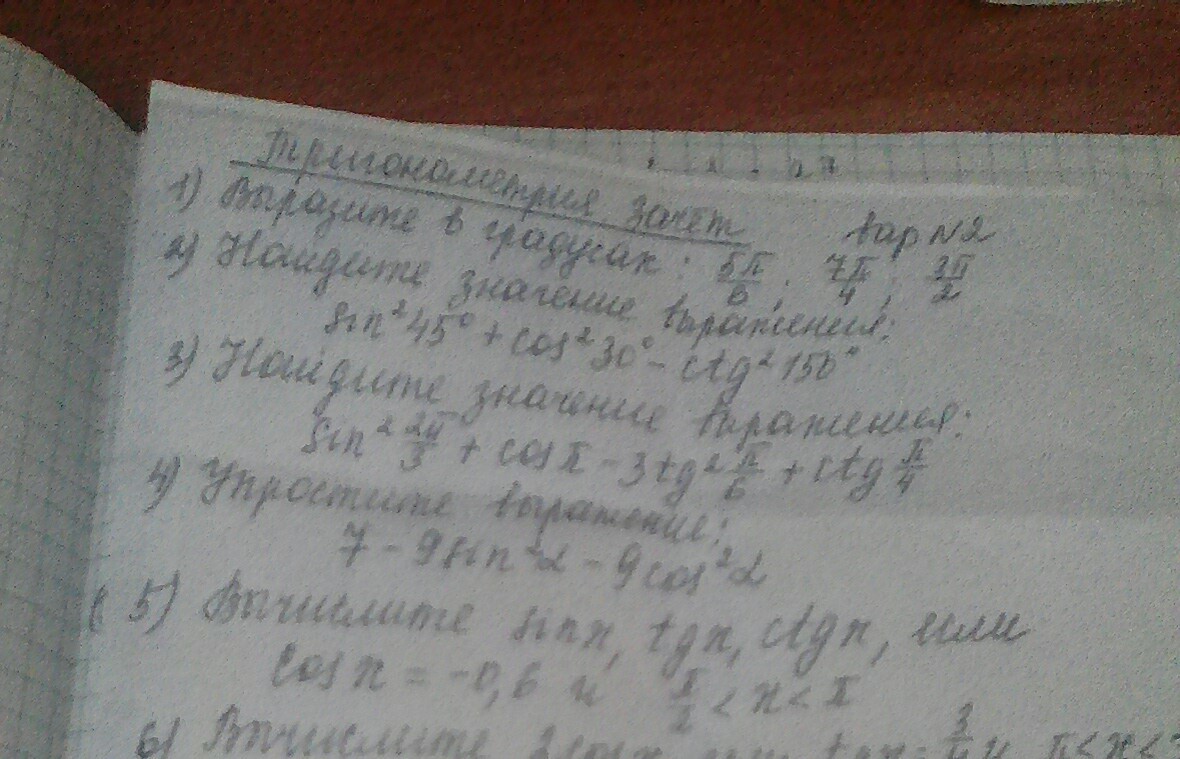 Тригонометрия зачёт
Вар №2
1) Выразите в градусах: 5π/6; 7π/4; 3π/2
2) Найдите значение выражения:
sin² 45° + cos² 30° - ctg² 150°
3) Найдите значение выражения:
sin² 2π/3 + cos π - 3tg² π/6 + ctg π/4
4) Упростите выражение:
7 - 9 sin² α - 9 cos² α
5) Вычислите sin x, tg x, ctg x, или
cos x = -0,6 и π/2 < x < π
6) Вычислите